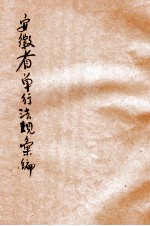 安徽省单行法规彙编